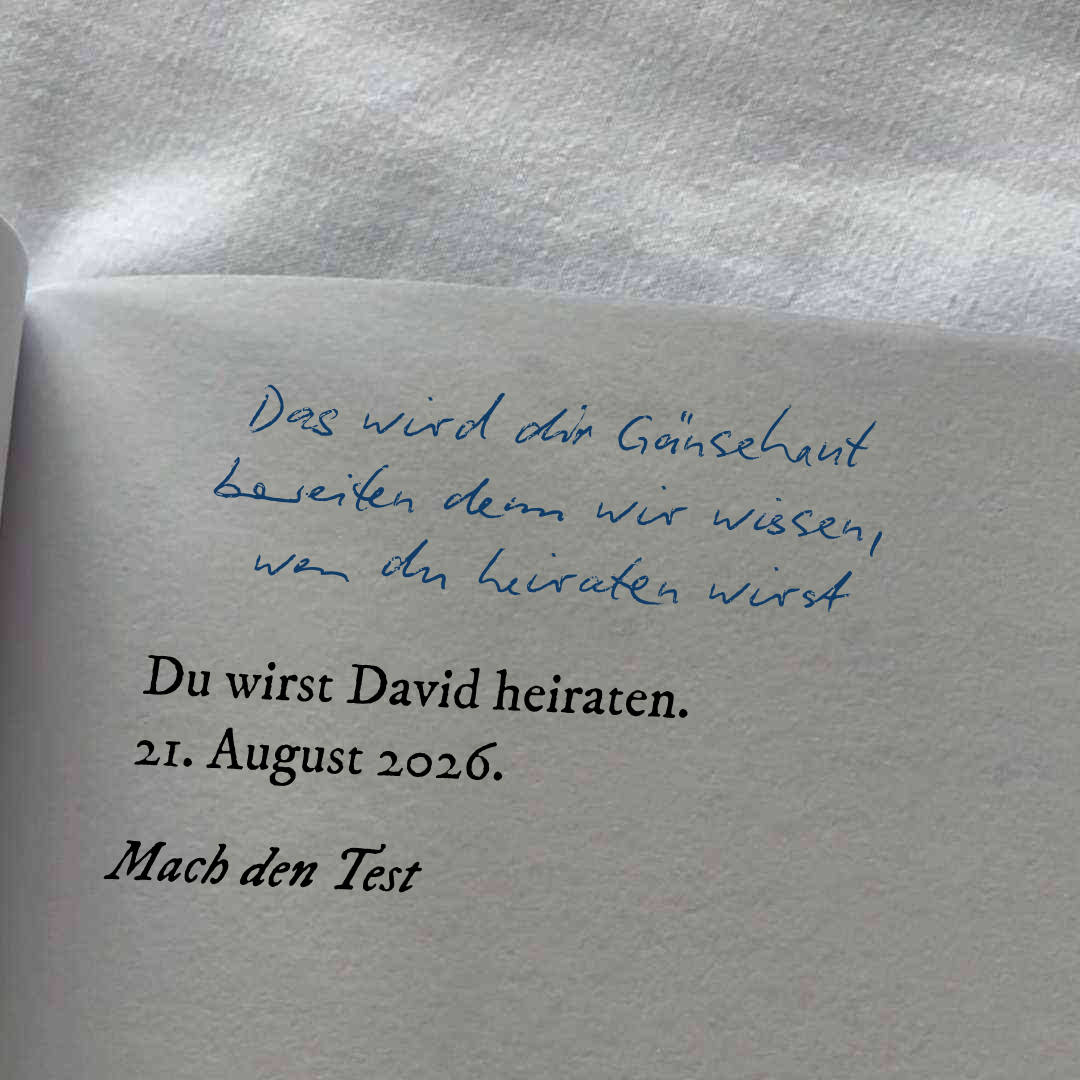 Das wird dir Gänsehaut
bereiten denn wir wissen,
wen du heiraten wirst
Du wirst David heiraten.
21. August 2026.
Mach den Test